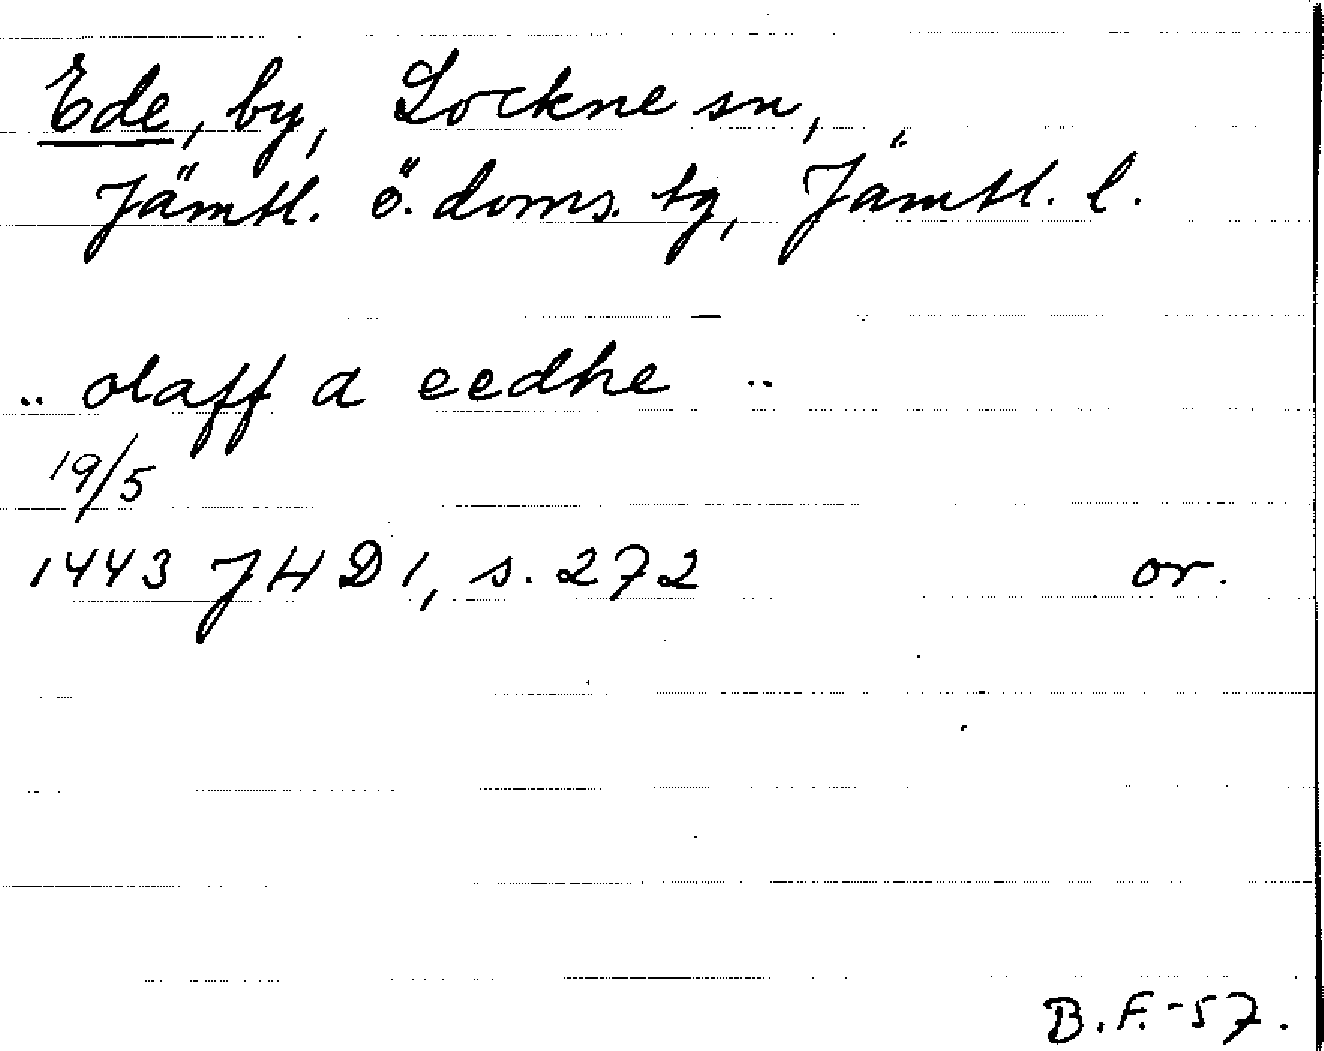 Ede, by, Lockne sn,
Jämtl. ö. doms. tg, Jämtl. l.
.. olaff a eedhe ..
19/5
1443 JHD 1, s. 272 or.
B.F.-57.